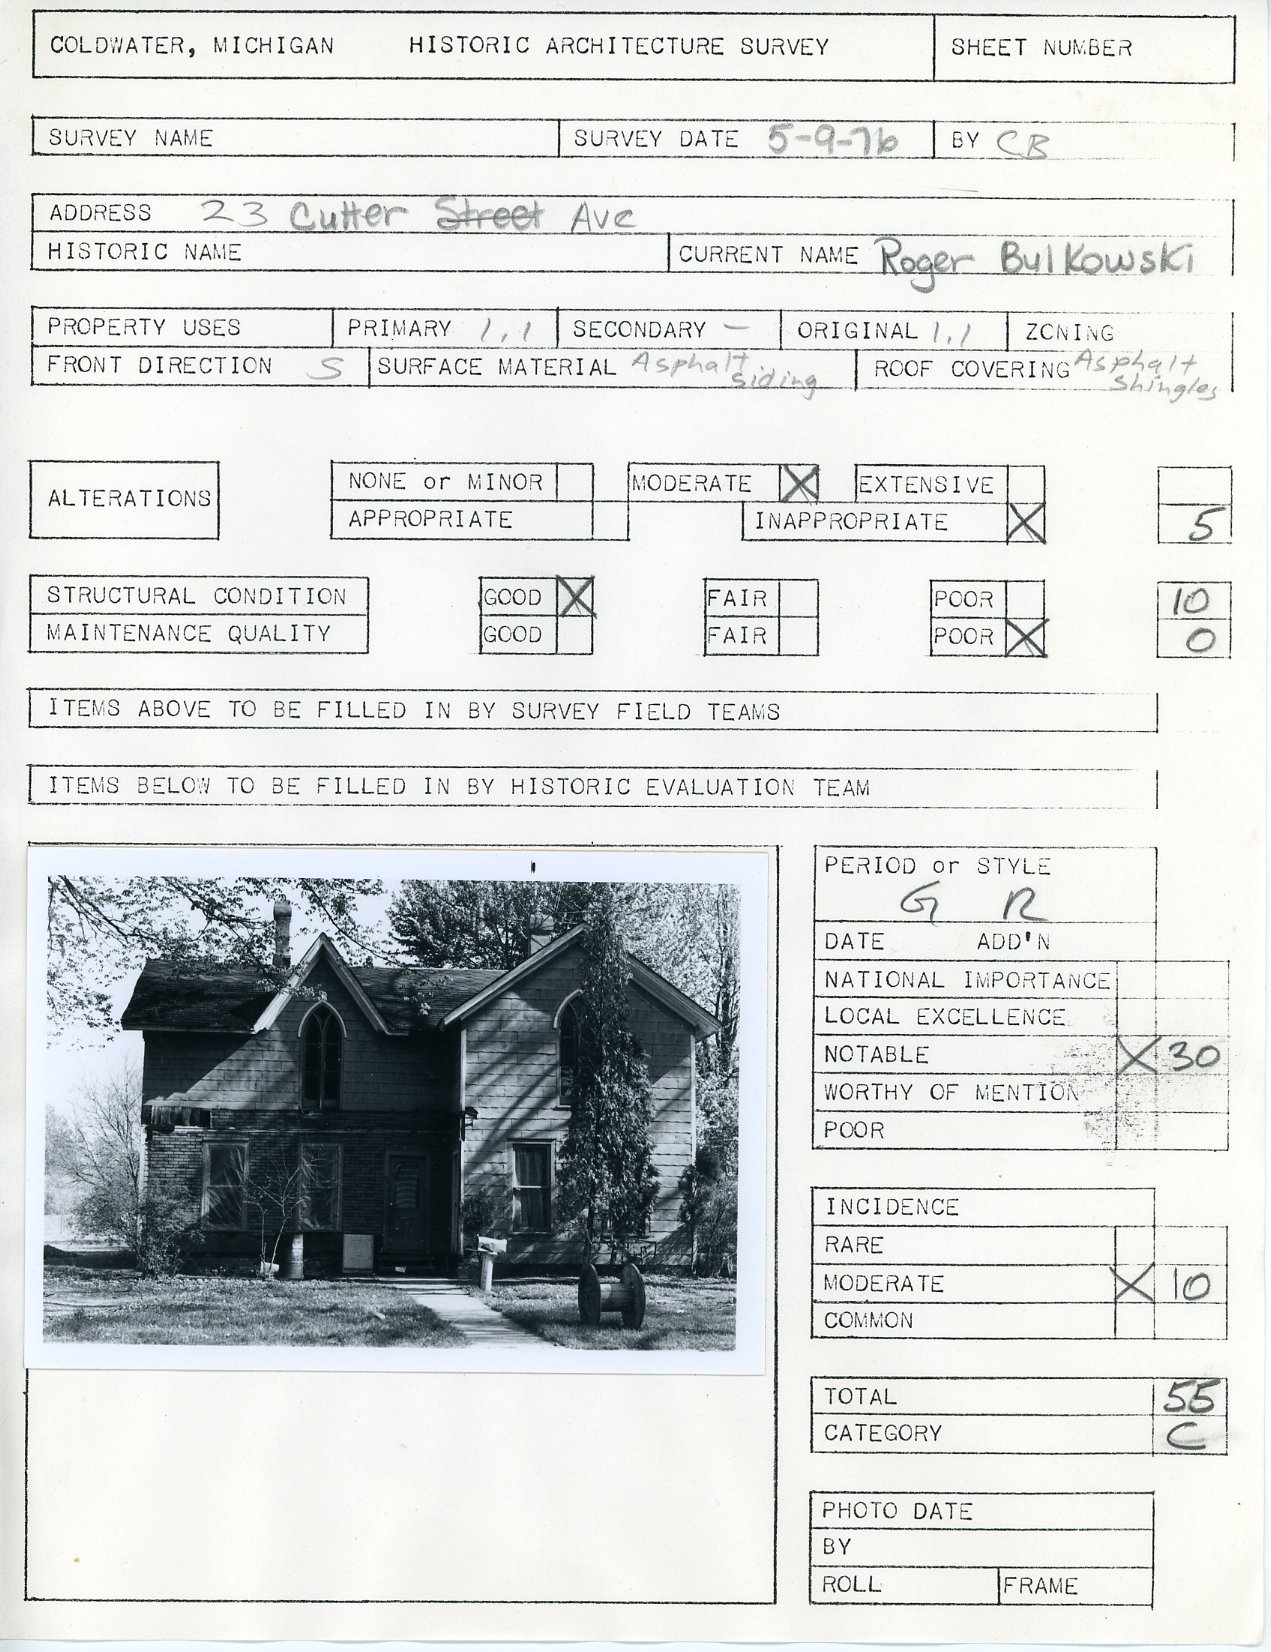 COLDWATER, MICHIGAN HISTORIC ARCHITECTURE SURVEY SHEET NUMBER
SURVEY NAME SURVEY DATE 5-9-76 BY CB
ADDRESS 23 Cutter Street Ave
HISTORIC NAME CURRENT NAME Roger Bulkowski
PROPERTY USES PRIMARY 1,1 SECONDARY — ORIGINAL 1,1 ZONING
FRONT DIRECTION S SURFACE MATERIAL Asphalt Siding ROOF COVERING Asphalt Shingles
ALTERATIONS
NONE or MINOR MODERATE X EXTENSIVE
APPROPRIATE INAPPROPRIATE X 5
STRUCTURAL CONDITION GOOD X FAIR POOR 10
MAINTENANCE QUALITY GOOD FAIR POOR X 0
ITEMS ABOVE TO BE FILLED IN BY SURVEY FIELD TEAMS
ITEMS BELOW TO BE FILLED IN BY HISTORIC EVALUATION TEAM
PERIOD or STYLE
G R
DATE ADD'N
NATIONAL IMPORTANCE
LOCAL EXCELLENCE
NOTABLE X 30
WORTHY OF MENTION
POOR
INCIDENCE
RARE
MODERATE X 10
COMMON
TOTAL 55
CATEGORY C
PHOTO DATE
BY
ROLL FRAME